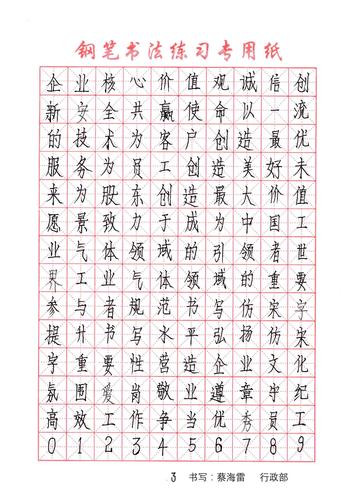 钢笔书法练习专用纸
企业核心价值观诚信创
新安全共赢使命以一流
的技术为客户创造最优
服务为员工创造美好未
来为股东创造最大价值
愿景致力于成为中国工
业气体领域的引领者世
界工业气体领域的重要
参与者规范书写仿宋字
提升书写水平弘扬仿宋
字重要性营造企业文化
氛围爱岗敬业遵章守纪
高效工作争当优秀员工
0123456789
3 书写：蔡海雷 行政部